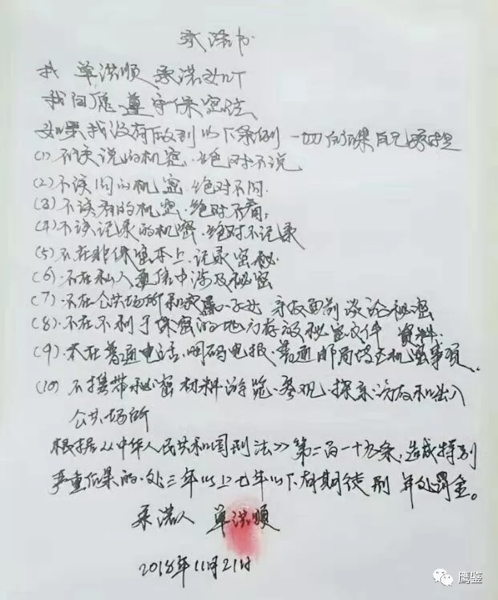 承诺书
我 单洪顺 承诺如下
我自愿遵守保密法
如果我没有做到以下条例 一切后果自己承担
(1)不该说的机密、绝对不说
(2)不该问的机密、绝对不问
(3)不该看的机密、绝对不看
(4)不该记录的机密、绝对不记录
(5)不在非保密本上记录秘密
(6)不在私人通信中涉及秘密
(7)不在公共场所和家属、子女、亲友面前谈论秘密
(8)不在不利于保密的地方存放秘密文件 资料
(9)不在普通电话、明码电报、普通邮局传达机密事项
(10)不携带秘密材料游览、参观、探亲、访友和出入
公共场所
根据《中华人民共和国刑法》第二百一十九条,造成特别
严重后果的,处三年以上七年以下有期徒刑 并处罚金。
承诺人 单洪顺
2018年11月21日
鹰鉴